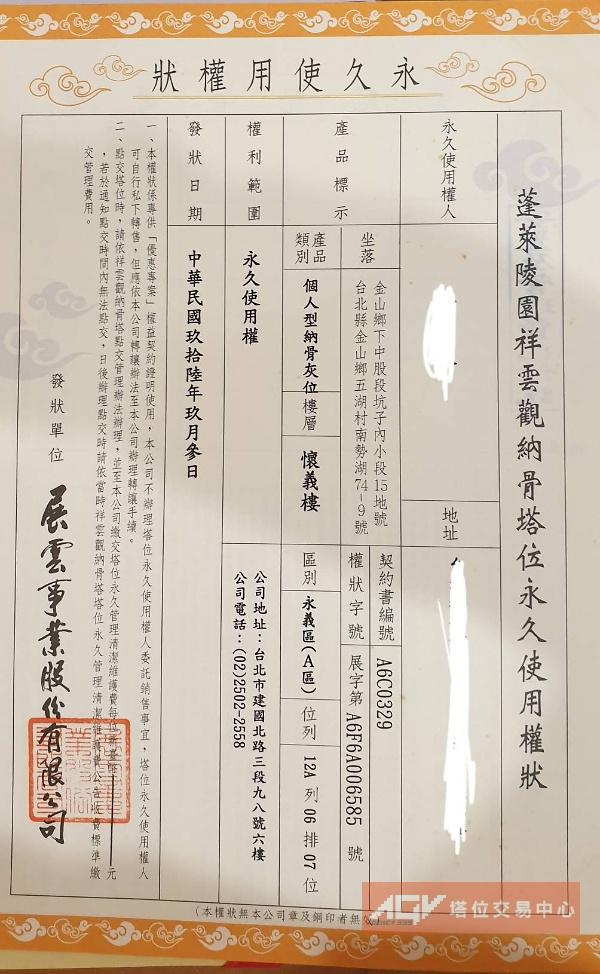 永久使用權狀
蓬萊陵園祥雲觀納骨塔位永久使用權狀
永久使用權人
地址
產品標示
坐落
金山鄉下中股段坑子內小段15地號
台北縣金山鄉五湖村南勢湖74-9號
契約書編號
A6C0329
權狀字號
展字第A6F6A006585號
產品類別
個人型納骨灰位
樓層
懷義樓
區別
永義區(A區)
位列
12A列06排07位
權利範圍
永久使用權
公司地址：台北市建國北路三段九八號六樓
公司電話：(02)2502-2558
發狀日期
中華民國玖拾陸年玖月參日
一、本權狀係專供「優惠專案」權益契約證明使用，本公司不辦理塔位永久使用權人委託銷售事宜，塔位永久使用權人
可自行私下轉售，但應依本公司轉讓辦法至本公司辦理轉讓手續。
二、點交塔位時，請依祥雲觀納骨塔點交管理辦法辦理，並至本公司繳交塔位永久管理清潔維護費每位新臺幣 元
，若於通知點交時間內無法點交，日後辦理點交時請依當時祥雲觀納骨塔塔位永久管理清潔維護費公告收費標準繳
交管理費用。
發狀單位
展雲事業股份有限公司
(本權狀無本公司章及鋼印者無效)
AGV 塔位交易中心